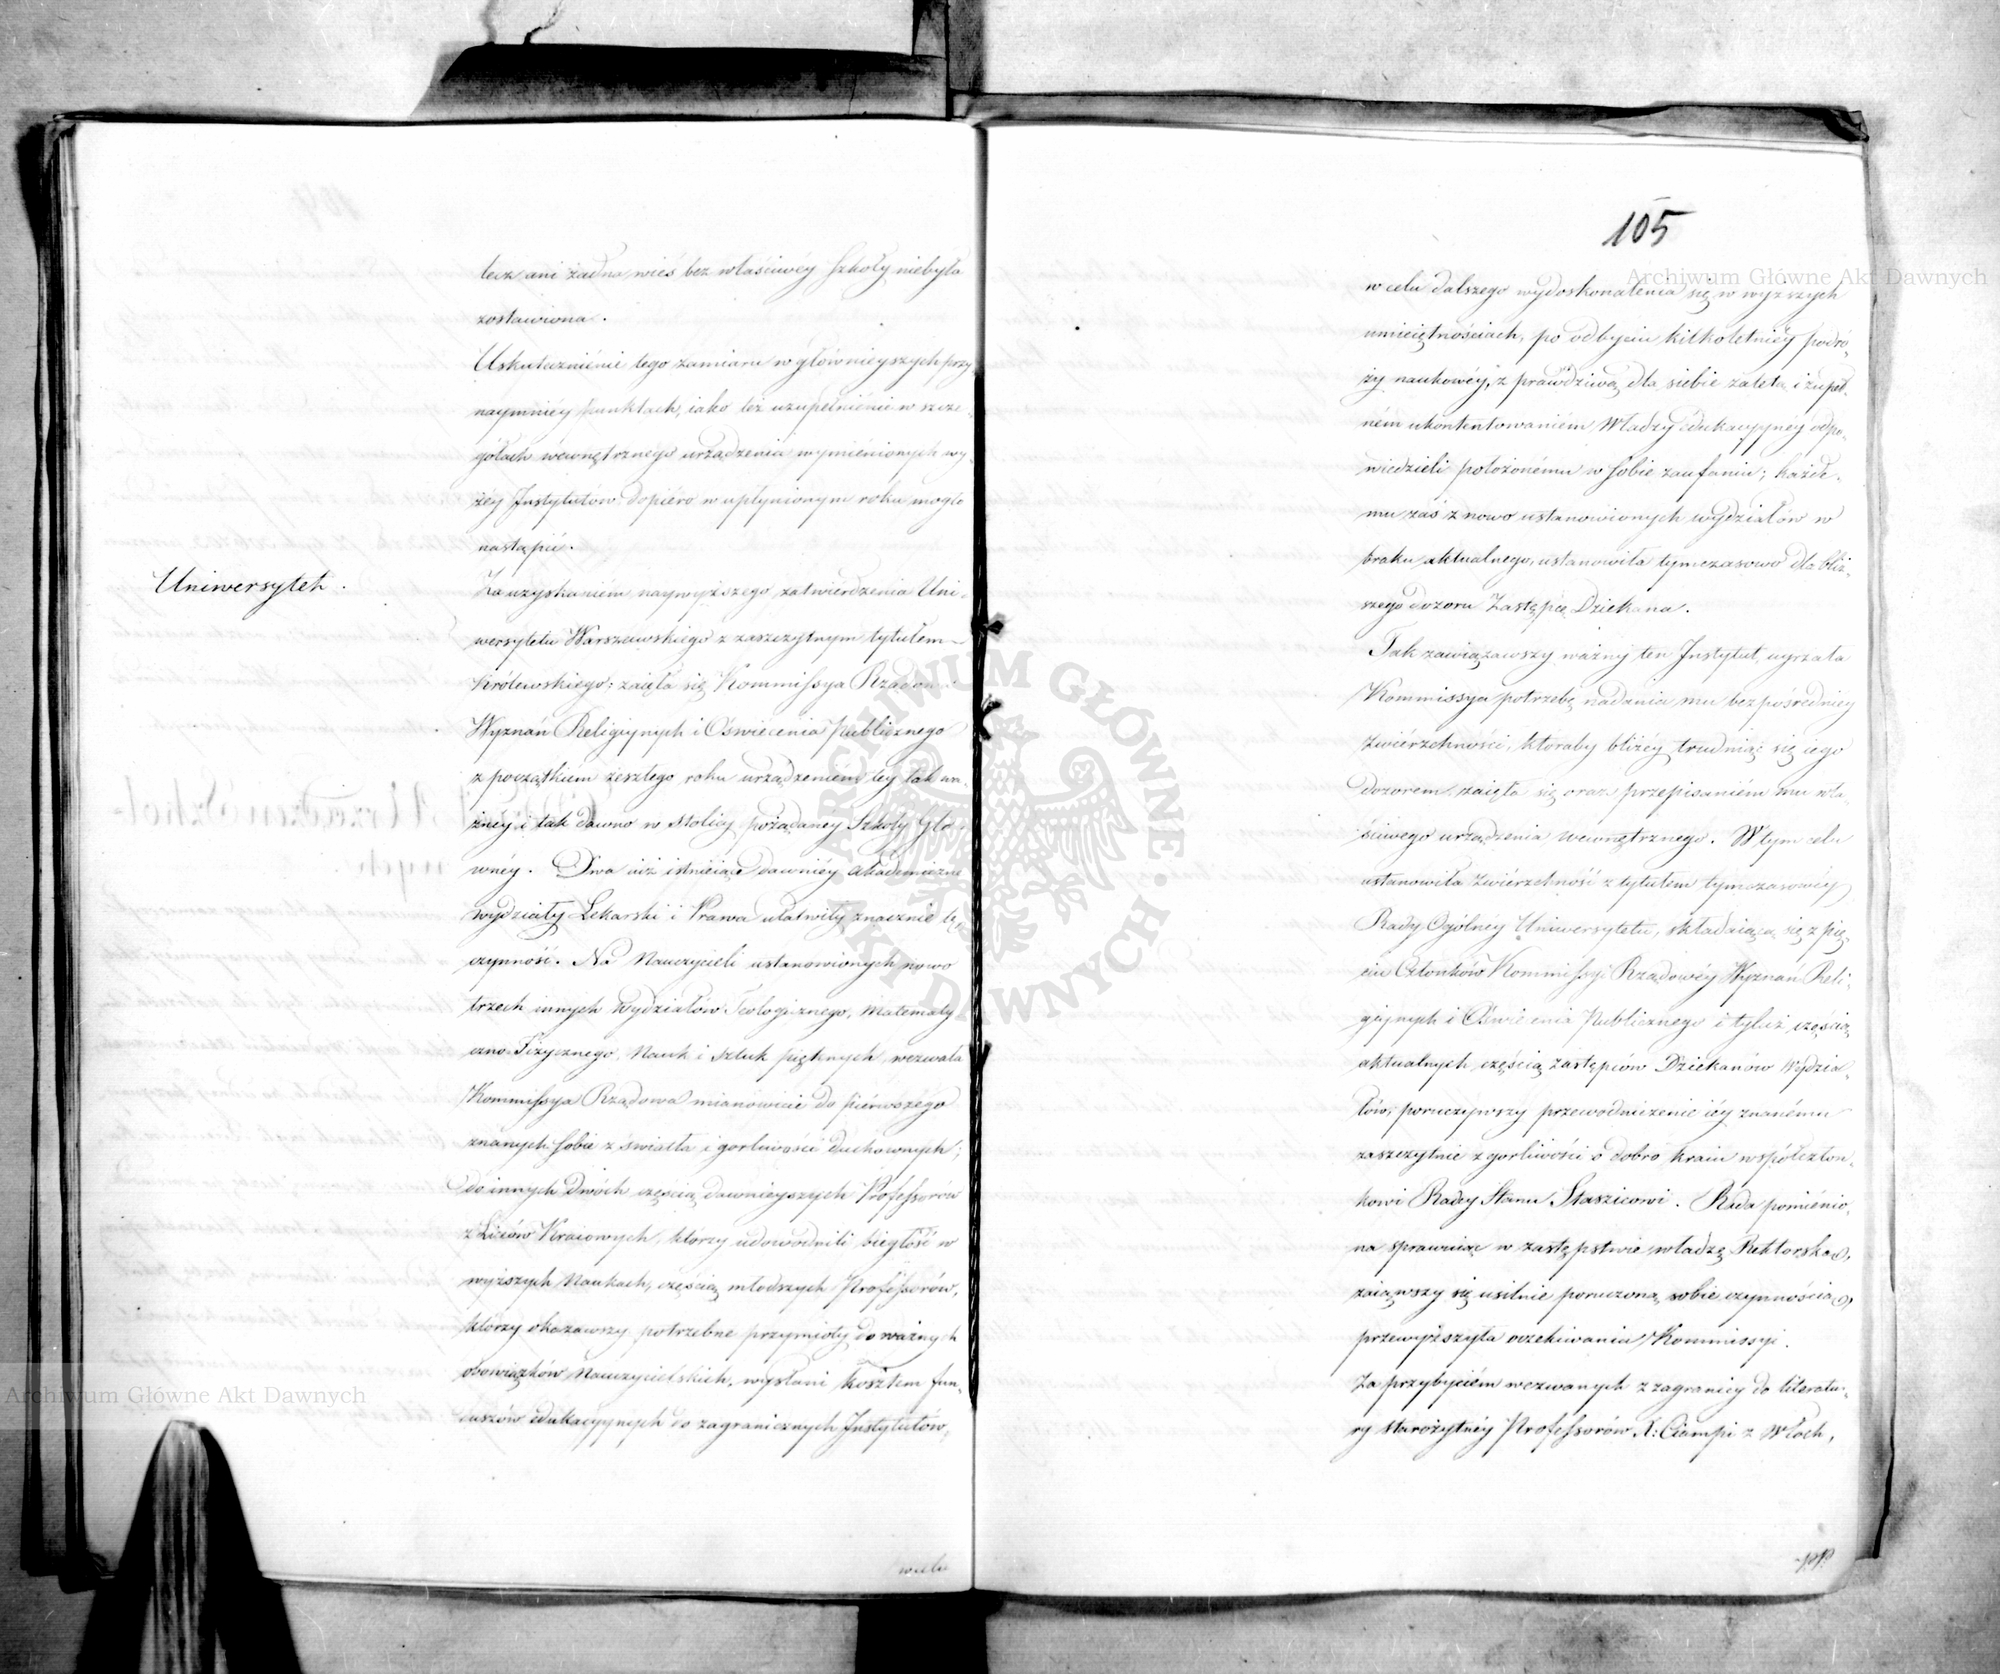 lecz ani żadna wieś bez właściwéy Szkoły niebyła
zostawiona.
Uskutecznienie tego zamiaru w główniejszych przy
naymniéy punktach, iako też uzupełniénie w szcze-
gółach wewnętrznego urządzenia wymiénionych wy-
żéy Instytutów dopiéro w upłynionym roku mogło
nastąpić.
Uniwersytet.
Za uzyskaniem naywyższego zatwierdzenia Uni-
wersytetu Warszawskiego z zaszczytnym tytułem
Królewskiego; zaięła się Kommissya Rządowa
Wyznań Religiynych i Oświécenia Publicznego
z początkiem zeszłego roku urządzeniém téy tak wa-
żnéy i tak dawno w stolicy pożądanéy Szkoły Głó-
wnéy. Dwa iuż istnieiące dawniéy akademiczne
wydziały Lekarski i Prawa ułatwiły znacznie tę
czynność. Na Nauczycieli ustanowionych nowo
trzech innych Wydziałów Teologicznego, Matematy
czno-Fizycznego, Nauk i Sztuk pięknych, wezwała
Kommissya Rządowa mianowicie do piérwszego
znanych sobie z światła i gorliwości duchownych;
do innych dwóch częścią dawnieyszych Professorów
z Liceów Kraiowych, którzy udowodnili biegłość w
wyższych Naukach, częścią młodszych Professorów,
którzy okazawszy potrzebne przymioty do ważnych
obowiązków Nauczycielskich, wysłani kosztem fun-
duszów edukacyynych do zagranicznych Instytutów,
w celu
105
w celu dalszego wydoskonalenia się w wyższych
umieiętnościach, po odbyciu kilkoletniéy podró-
ży naukowéy, z prawdziwą dla siebie zaletą i zupeł-
ném ukontentowaniém Władzy edukacyynéy odpo-
wiedzieli położonému w sobie zaufaniu; każde-
mu zaś z nowo ustanowionych wydziałów w
braku aktualnego, ustanowiła tymczasowo dla bliż-
szego dozoru Zastępcę Dziekana.
Tak zawiązawszy ważny ten Instytut, uyrzała
Kommissya potrzebę nadania mu bezpośredniéy
zwierzchności, któraby bliżéy trudniąc się iego
dozorem zaięła się oraz przepisaniém mu wła
ściwego urządzenia wewnętrznego. W tym celu
ustanowiła zwiérzchność z tytułem tymczasowéy
Rady Ogólnéy Uniwersytetu, składaiącą się z pię
ciu Członków Kommissyi Rządowéy Wyznań Reli-
giynych i Oświecenia Publicznego i tyluż częścią
aktualnych częścią zastępców Dziekanów Wydzia-
łów, poruczywszy przewodniczenie iéy znanému
zaszczytnie z gorliwości o dobro kraiu współczłon-
kowi Radcy Stanu Staszicowi. Rada pomiénio-
na sprawuiąc w zastępstwie władzę Rektorską,
zaiąwszy się usilnie poruczoną sobie czynnością,
przewyższyła oczekiwania Kommissyi.
Za przybyciém wezwanych z zagranicy do literatu-
ry starożytnéy Professorów X: Ciampi z Włoch,
Archiwum Główne Akt Dawnych
Archiwum Główne Akt Dawnych
ARCHIWUM GŁÓWNE AKT DAWNYCH